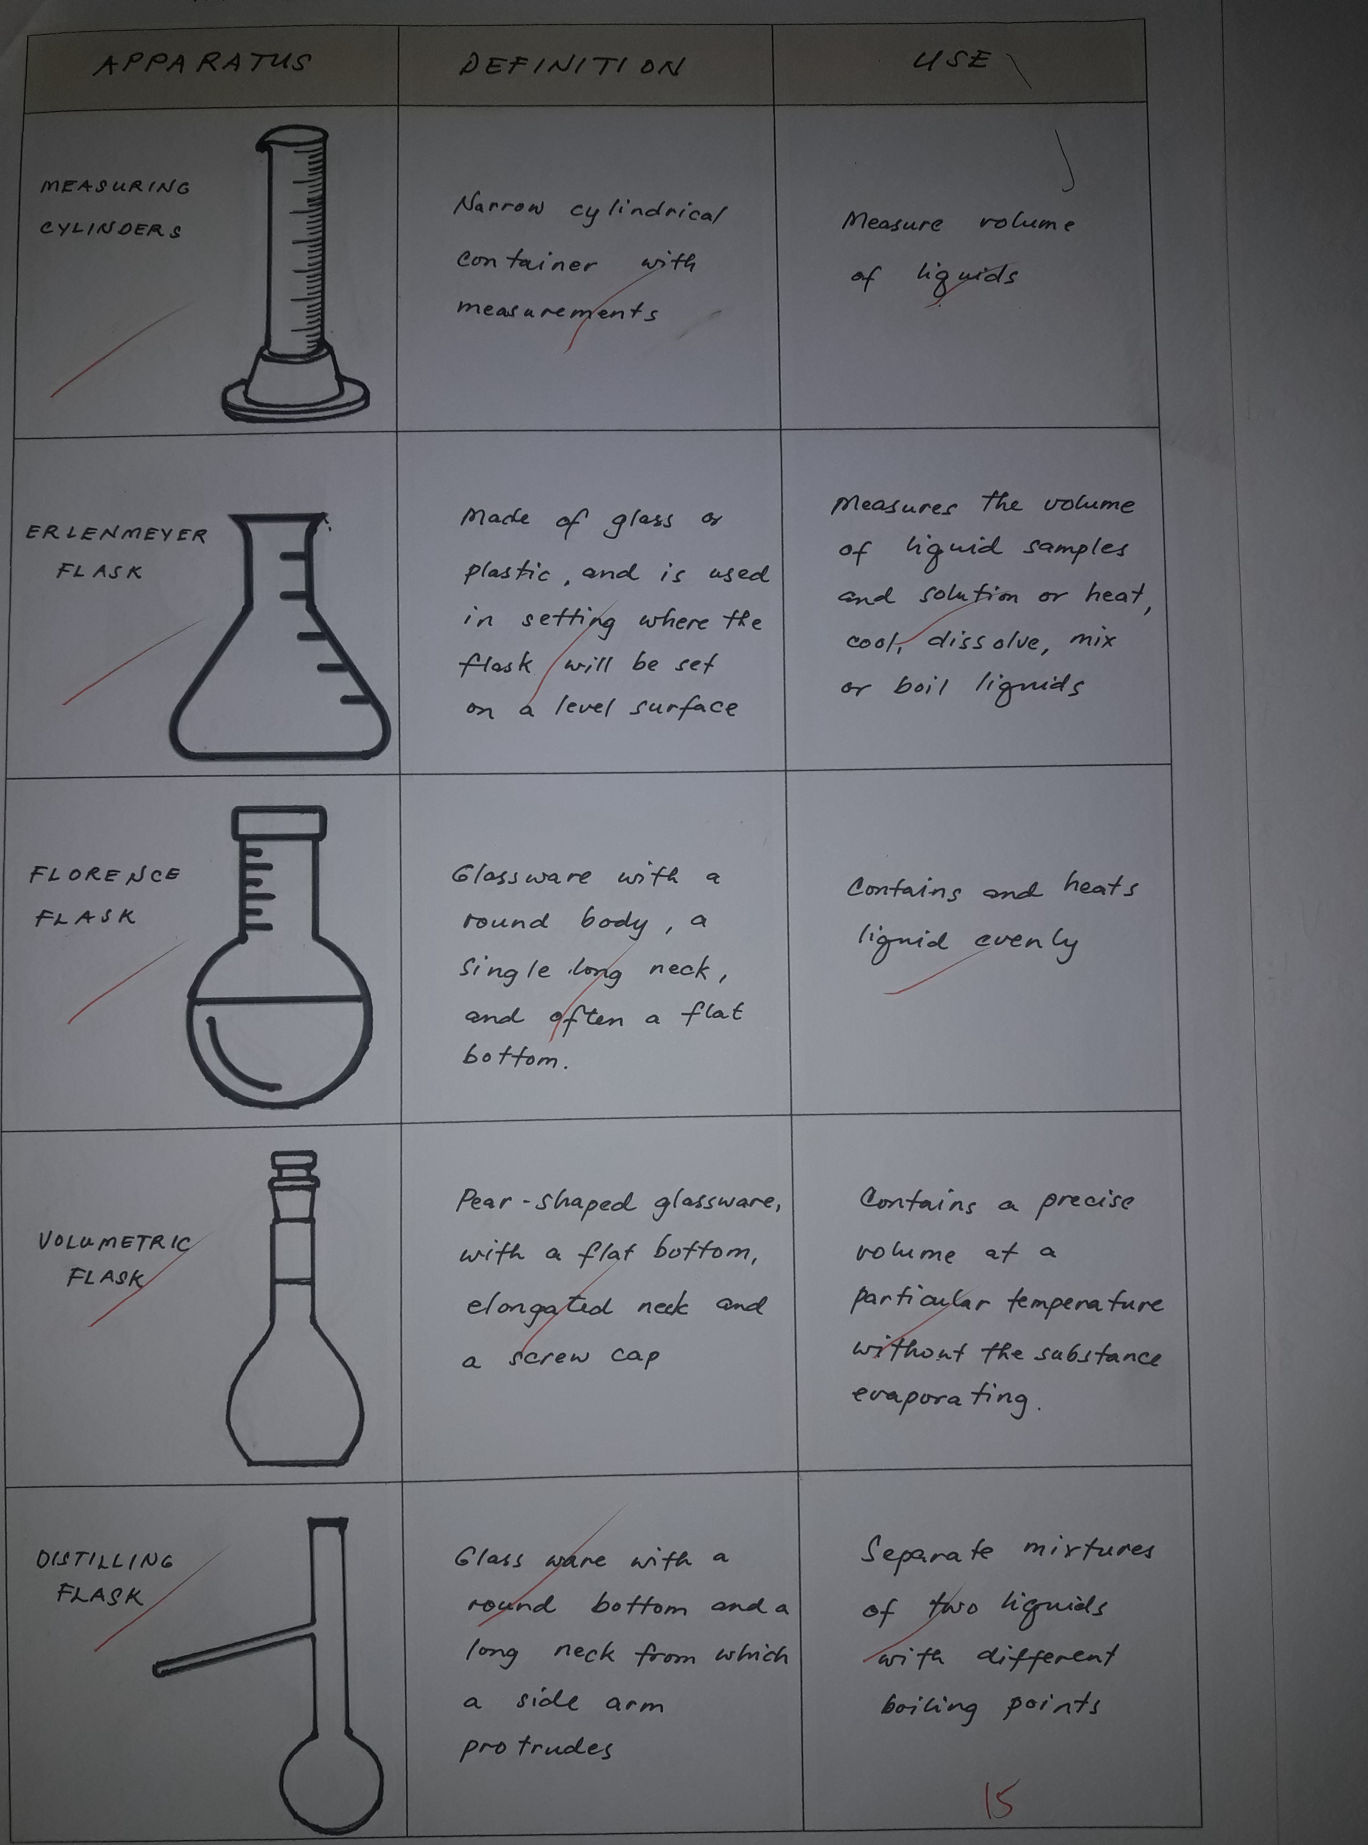 APPARATUS
DEFINITION
USE
MEASURING
CYLINDERS
Narrow cylindrical
container with
measurements
Measure volume
of liquids
ERLENMEYER
FLASK
Made of glass or
plastic, and is used
in setting where the
flask will be set
on a level surface
Measures the volume
of liquid samples
and solution or heat,
cool, dissolve, mix
or boil liquids
FLORENCE
FLASK
Glassware with a
round body, a
single long neck,
and often a flat
bottom.
Contains and heats
liquid evenly
VOLUMETRIC
FLASK
Pear-shaped glassware,
with a flat bottom,
elongated neck and
a screw cap
Contains a precise
volume at a
particular temperature
without the substance
evaporating.
DISTILLING
FLASK
Glass ware with a
round bottom and a
long neck from which
a side arm
protrudes
Separate mixtures
of two liquids
with different
boiling points
15